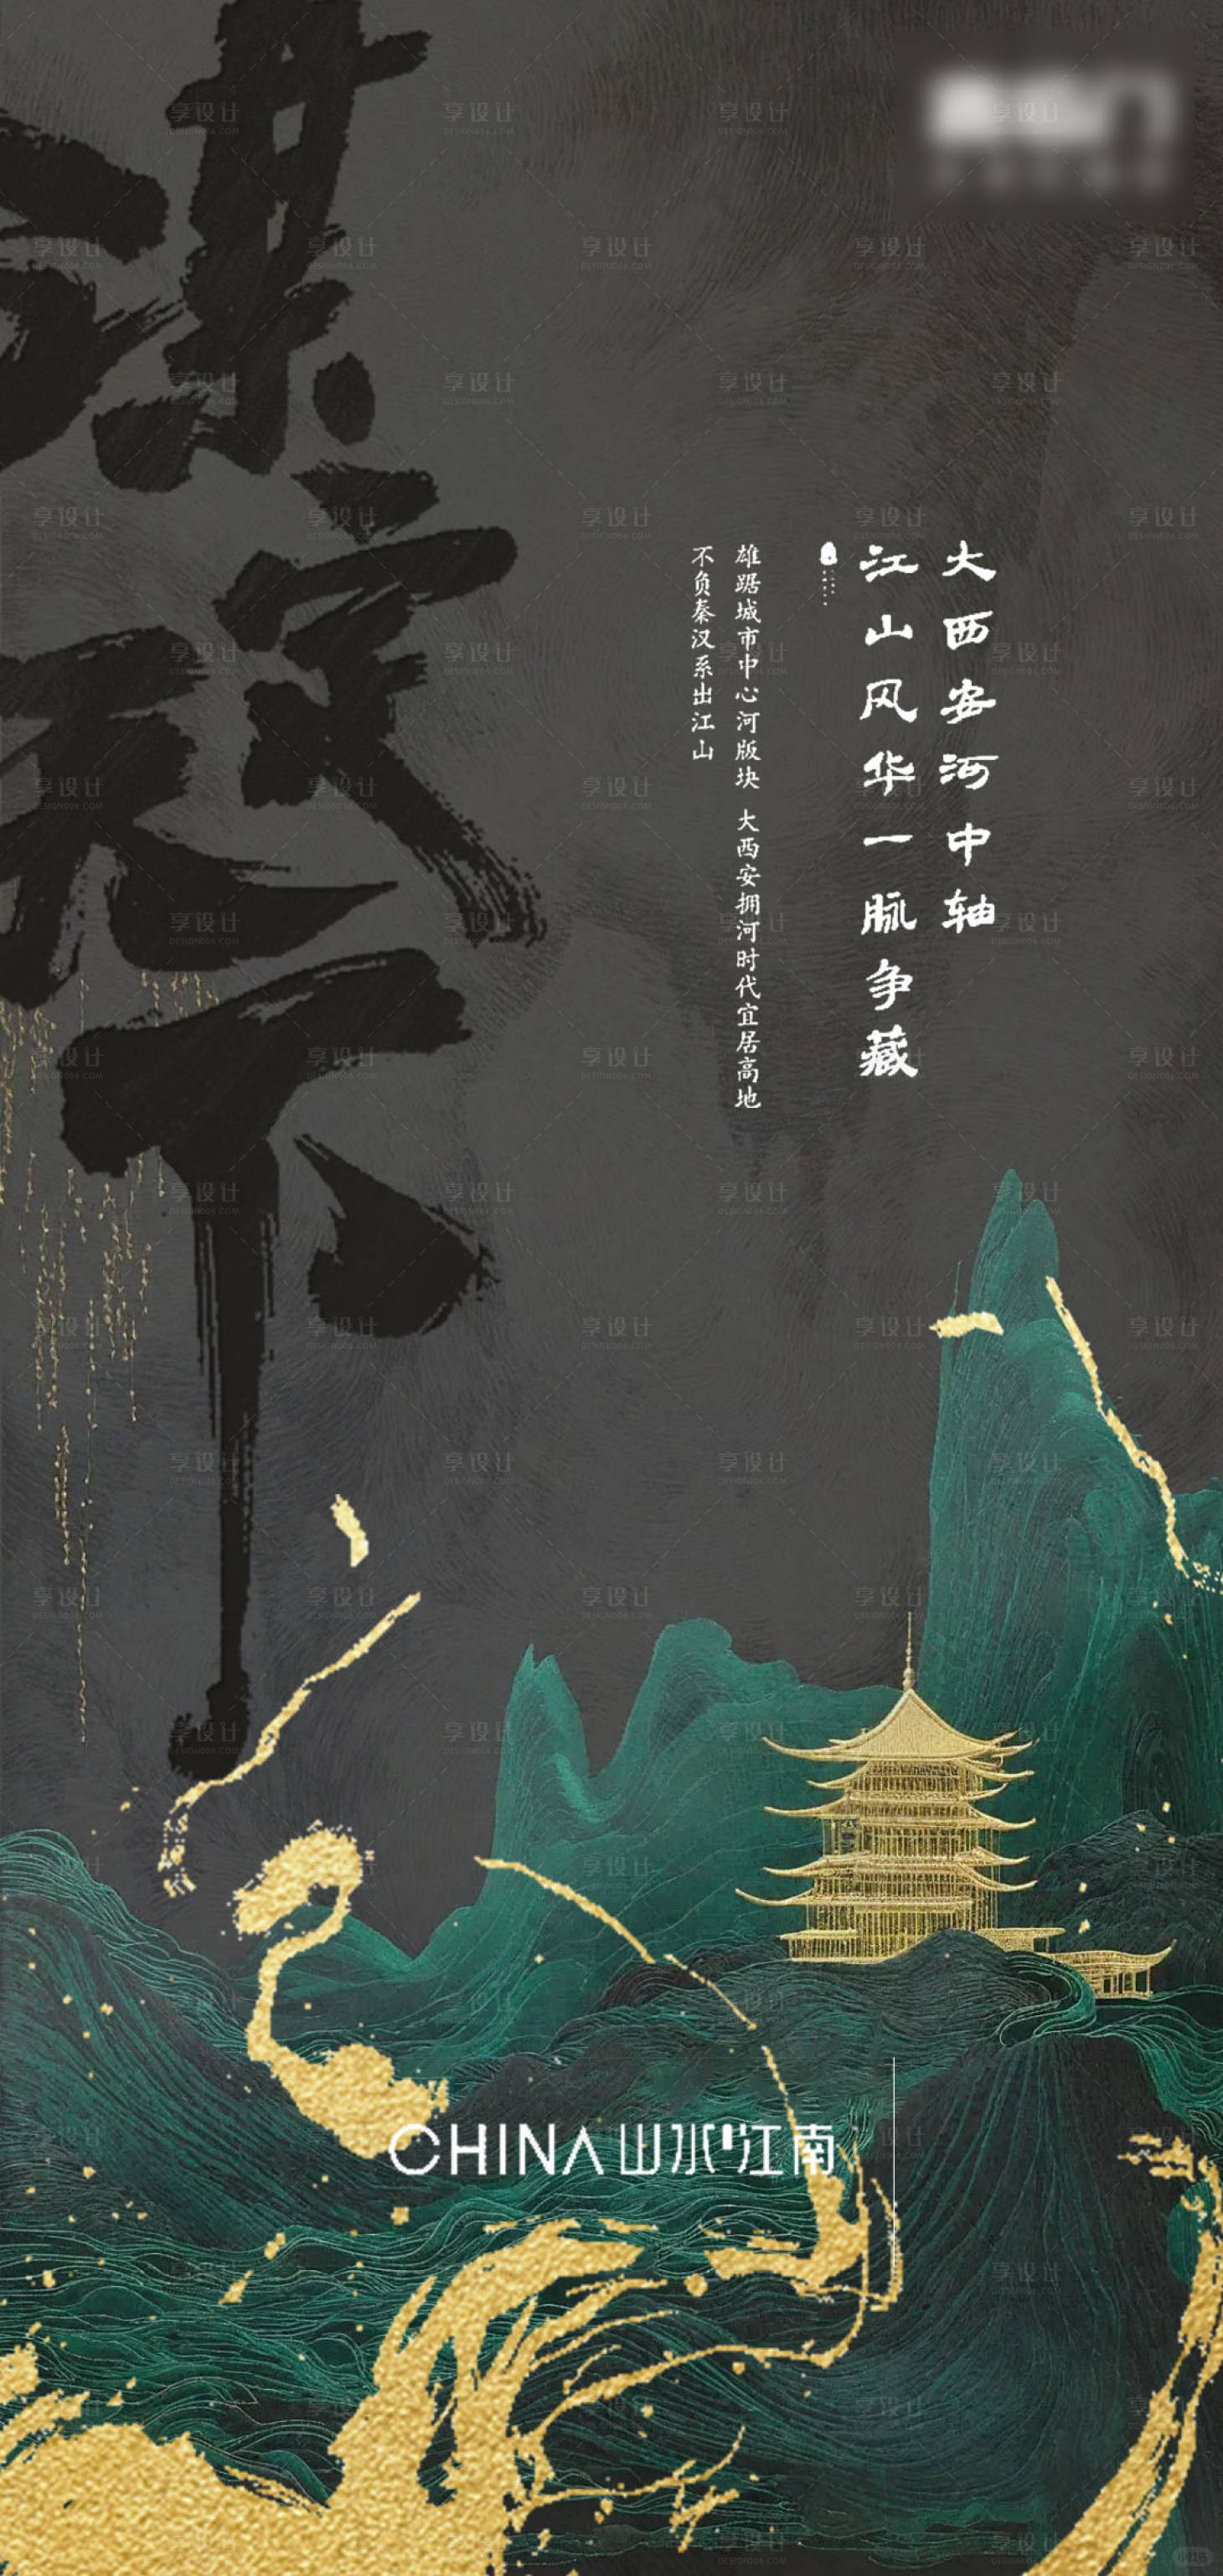 大西安河中轴
江山风华一脉争藏
雄踞城市中心河版块 大西安拥河时代宜居高地
不负秦汉系出江山
CHINA 山水江南
享设计
DESIGN006.COM